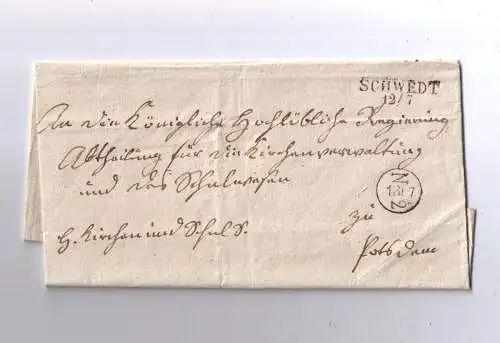 SCHWEDT
12/7
An die Königliche Hochlöbliche Regierung
Abtheilung für die Kirchenverwaltung
und das Schulwesen
N
13/7
2
zu
H. Kirchen und Schul S.
Potsdam